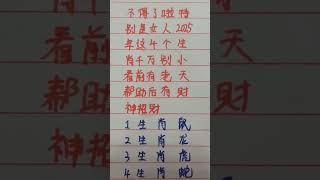 不得了啦特
别是女人2025
年这4个生
肖千万别小
看前有老天
帮助后有财
神招财
1生肖鼠
2生肖龙
3生肖虎
4生肖蛇